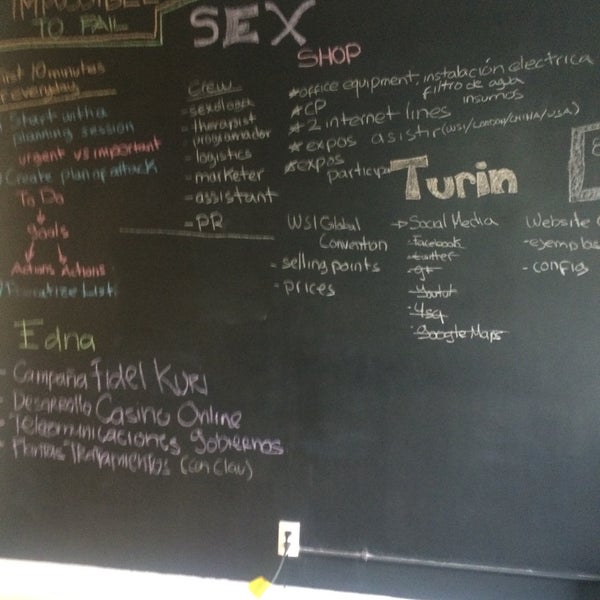 IMPOSSIBLE
TO FAIL
first 10 minutes
everyday
Start with a
planning session
urgent vs important
Create plan of attack
To Do
goals
Actions Actions
Prioritize List
SEX
SHOP
Crew
- sexologa
- therapist
- programador
- logistics
- marketer
- assistant
- PR
*office equipment, instalación electrica
filtro de agua
insumos
*CP
*2 internet lines
*expos asistir (WSI/LONDON/CHINA/USA)
*expos
participar
Turin
WSI Global
Convention
- selling points
- prices
→ Social Media
- Facebook
- twitter
- g+
- Youtut
- 4sq
- Google Maps
Website
- ejemplos
- config
Edna
- Campaña Fidel Kuri
- Desarrollo Casino Online
- Telecomunicaciones gobiernos
- Plantas Tratamientos (con Clau)